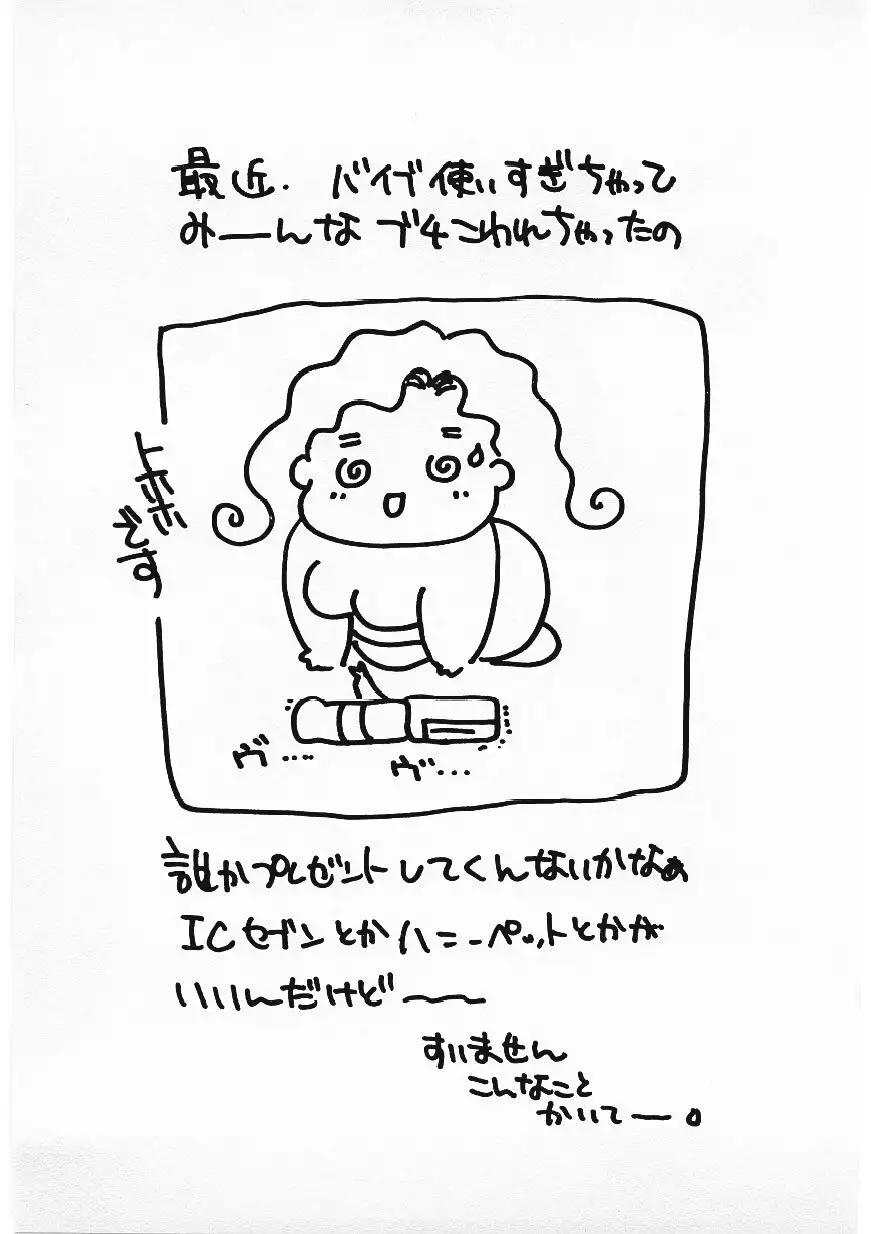 最近. バイブ使いすぎちゃって
みーんなブチこわれちゃったの
です
ヴ…
ヴ…
誰かプレゼントしてくんないかなぁ
ICセブンとかハニーペットとかが
いいんだけど〜〜
すいません
こんなこと
かいてー。